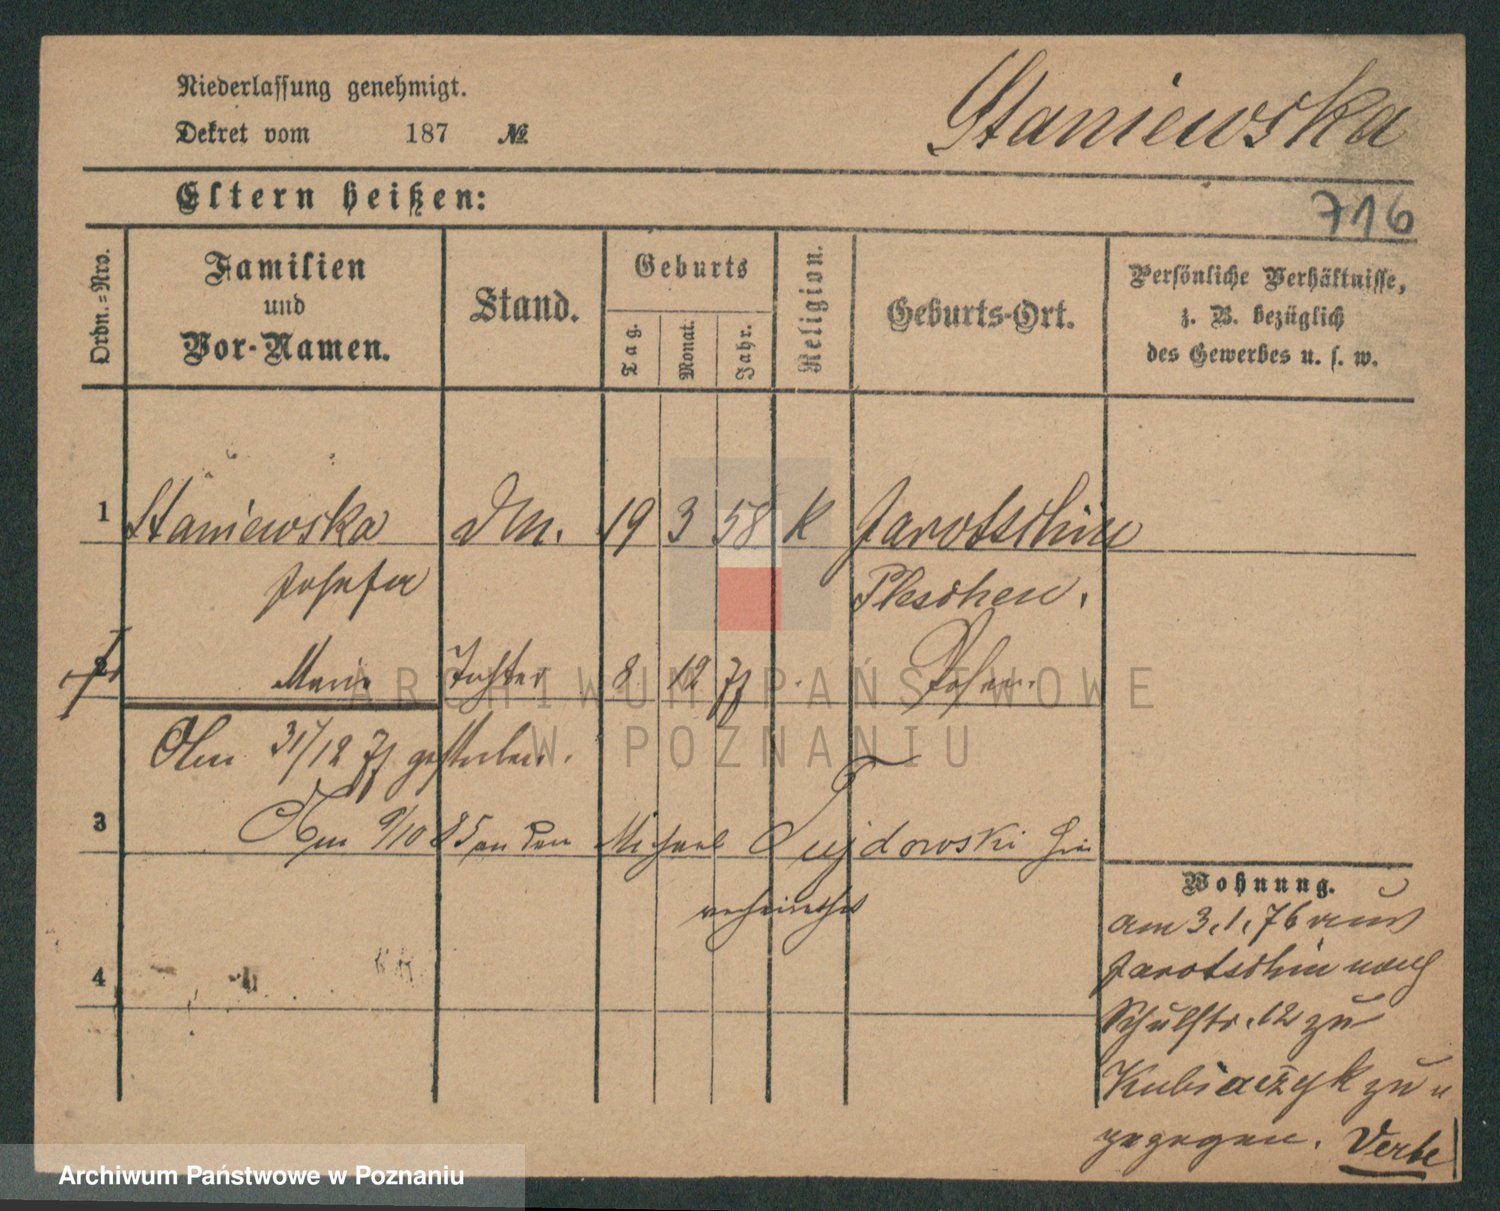 Niederlassung genehmigt.
Dekret vom 187 №
Staniewska
716
Eltern heißen:
Ordn.=Nro.
Familien
und
Vor-Namen.
Stand.
Geburts
Tag.
Monat.
Jahr.
Religion.
Geburts-Ort.
Persönliche Verhältnisse,
z. B. bezüglich
des Gewerbes u. s. w.
1 Staniewska Dm. 19 3 58 K Jarotschin
Josefa Pleschen.
2 Marie Tochter 8 12 77 Posen.
Am 31/12 77 gestorben.
3 Am 9/10 85 an den Michael Tujdowski hier
verheirathet
4
Wohnung.
am 3.1.76 aus
Jarotschin nach
Schulstr. 12 zu
Kubiaczyk zu
gezogen. Verte
ARCHIWUM PAŃSTWOWE
W POZNANIU
Archiwum Państwowe w Poznaniu